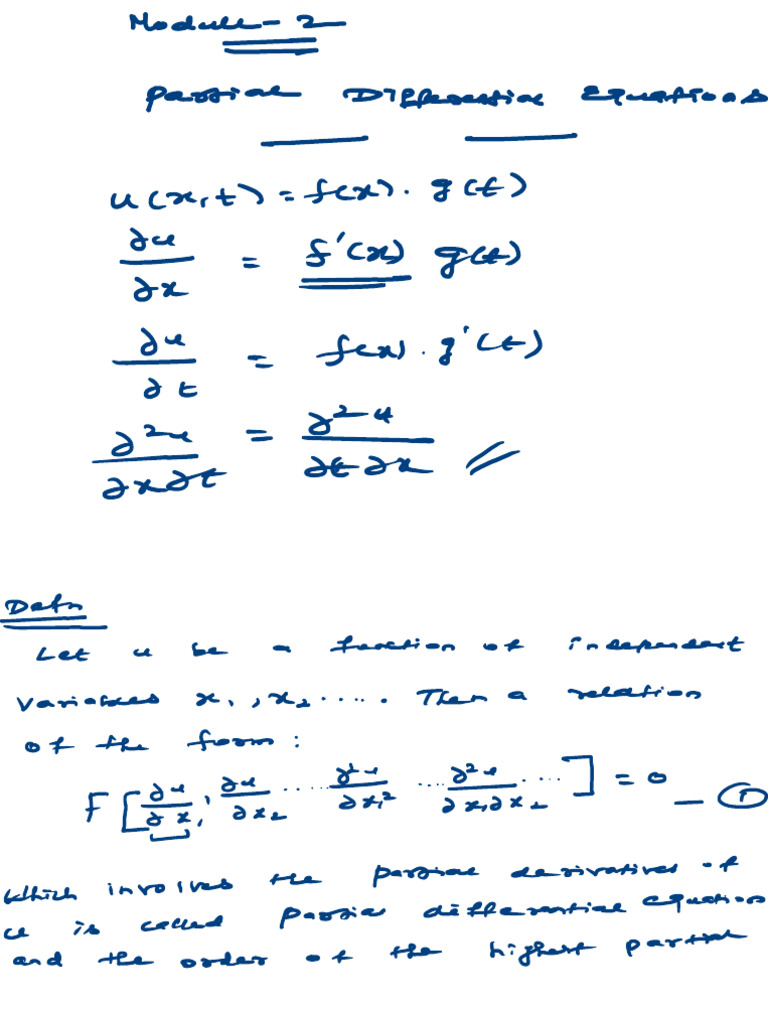 Module - 2
Partial Differential Equations
u(x,t) = f(x). g(t)
∂u/∂x = f'(x) g(t)
∂u/∂t = f(x). g'(t)
∂²u/∂x∂t = ∂²u/∂t∂x //
Defn
Let u be a function of independent
variables x₁, x₂ ..... Then a relation
of the form :
F[∂u/∂x₁, ∂u/∂x₂ ..... ∂²u/∂x₁² ... ∂²u/∂x₁∂x₂ .....] = 0 — ①
which involves the partial derivatives of
u is called partial differential equation
and the order of the highest partial